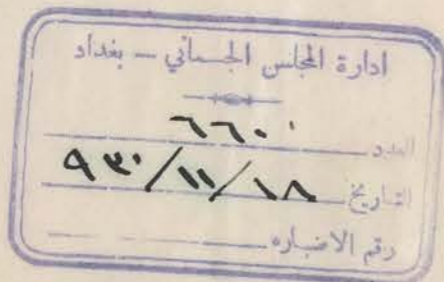 ادارة المجلس الجسماني — بغداد
العدد ٦٦٠٠
التاريخ ١٨/١١/٩٣٠
رقم الاضباره